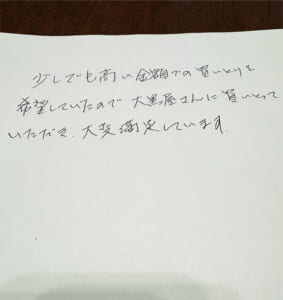 少しでも高い金額での買いとりを
希望していたので大黒屋さんに買いとって
いただき、大変満足しています。